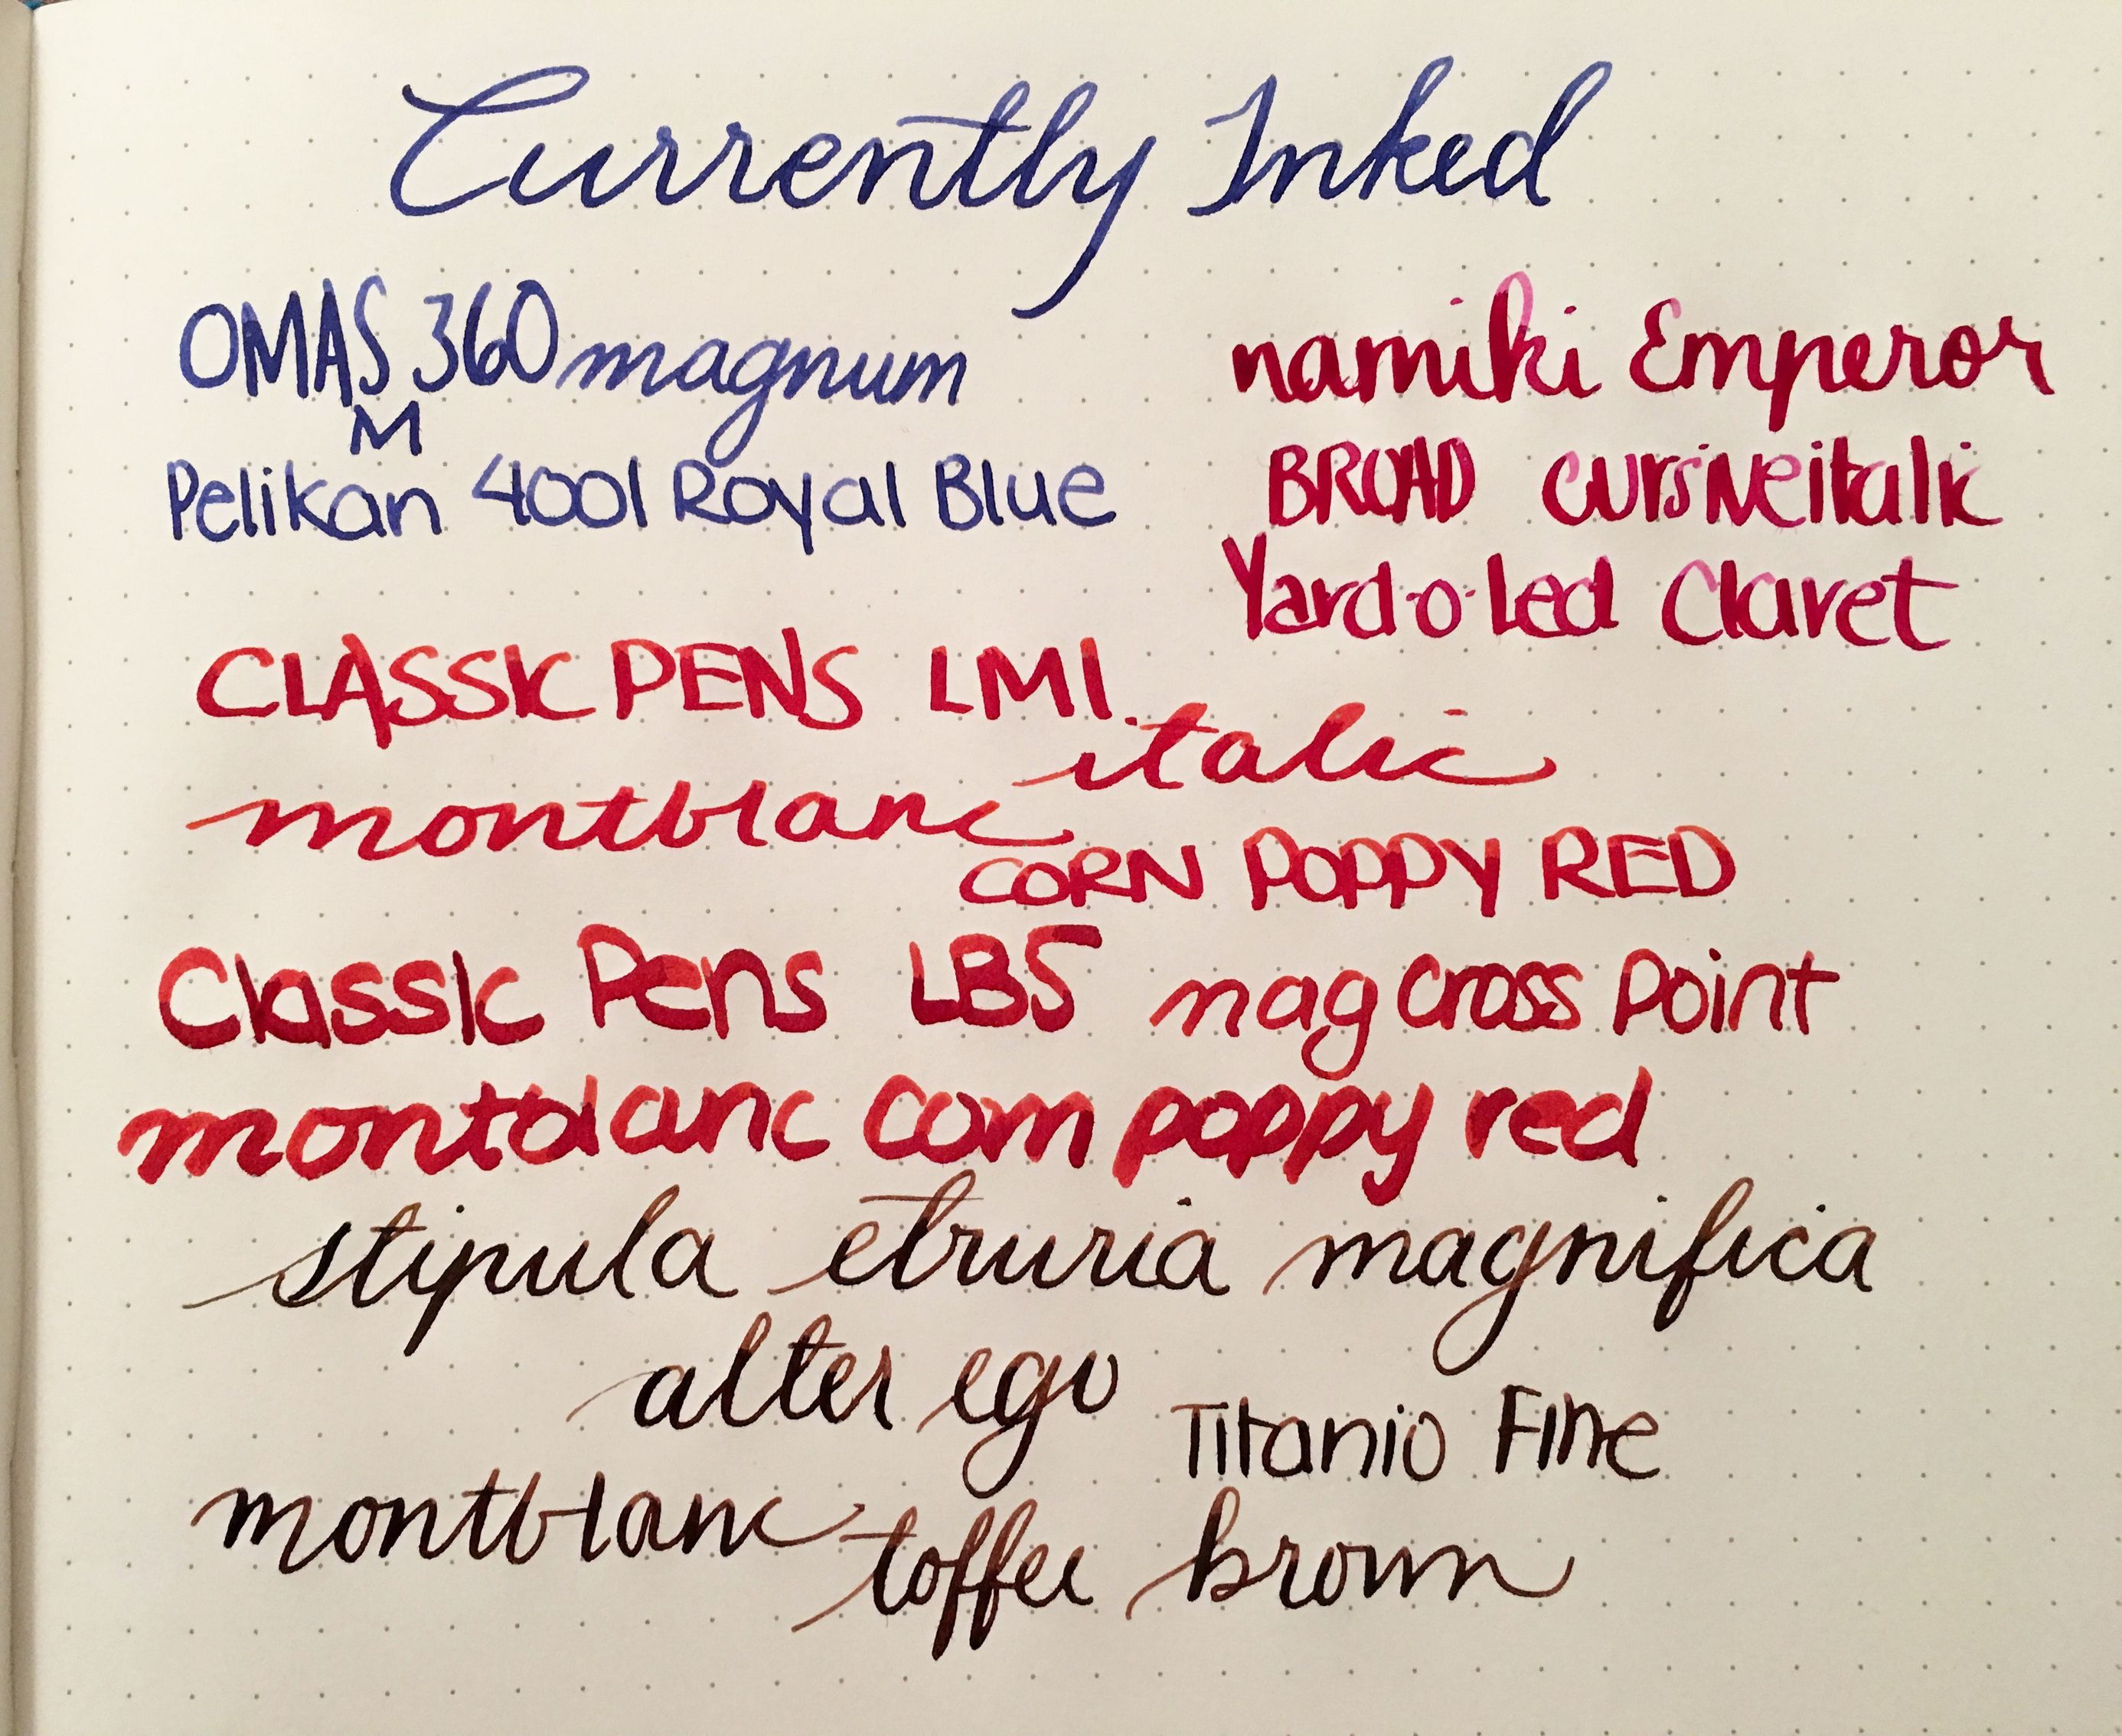 Currently Inked
OMAS 360 magnum
M
Pelikan 4001 Royal Blue
namiki Emperor
BROAD cursive italic
Yard-o-Led Claret
CLASSIC PENS LM1
italic
montblanc
CORN POPPY RED
Classic Pens LB5 nag cross Point
montblanc corn poppy red
stipula etruria magnifica
alter ego
Titanio Fine
montblanc
toffee brown